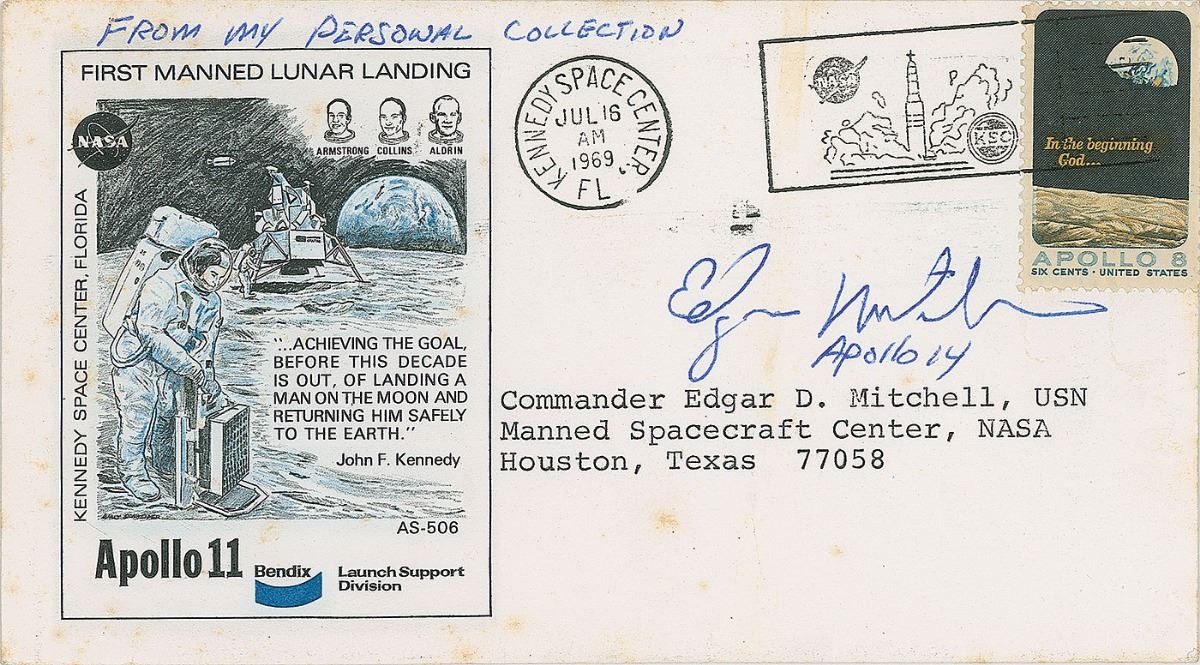 FROM MY PERSONAL COLLECTION
FIRST MANNED LUNAR LANDING
NASA
ARMSTRONG COLLINS ALDRIN
KENNEDY SPACE CENTER, FLORIDA
"...ACHIEVING THE GOAL,
BEFORE THIS DECADE
IS OUT, OF LANDING A
MAN ON THE MOON AND
RETURNING HIM SAFELY
TO THE EARTH."
John F. Kennedy
AS-506
Apollo 11
Bendix
Launch Support
Division
KENNEDY SPACE CENTER,
JUL 16
AM
1969
FL
NASA
KSC
In the beginning
God...
APOLLO 8
SIX CENTS · UNITED STATES
Edgar Mitchell
Apollo 14
Commander Edgar D. Mitchell, USN
Manned Spacecraft Center, NASA
Houston, Texas 77058